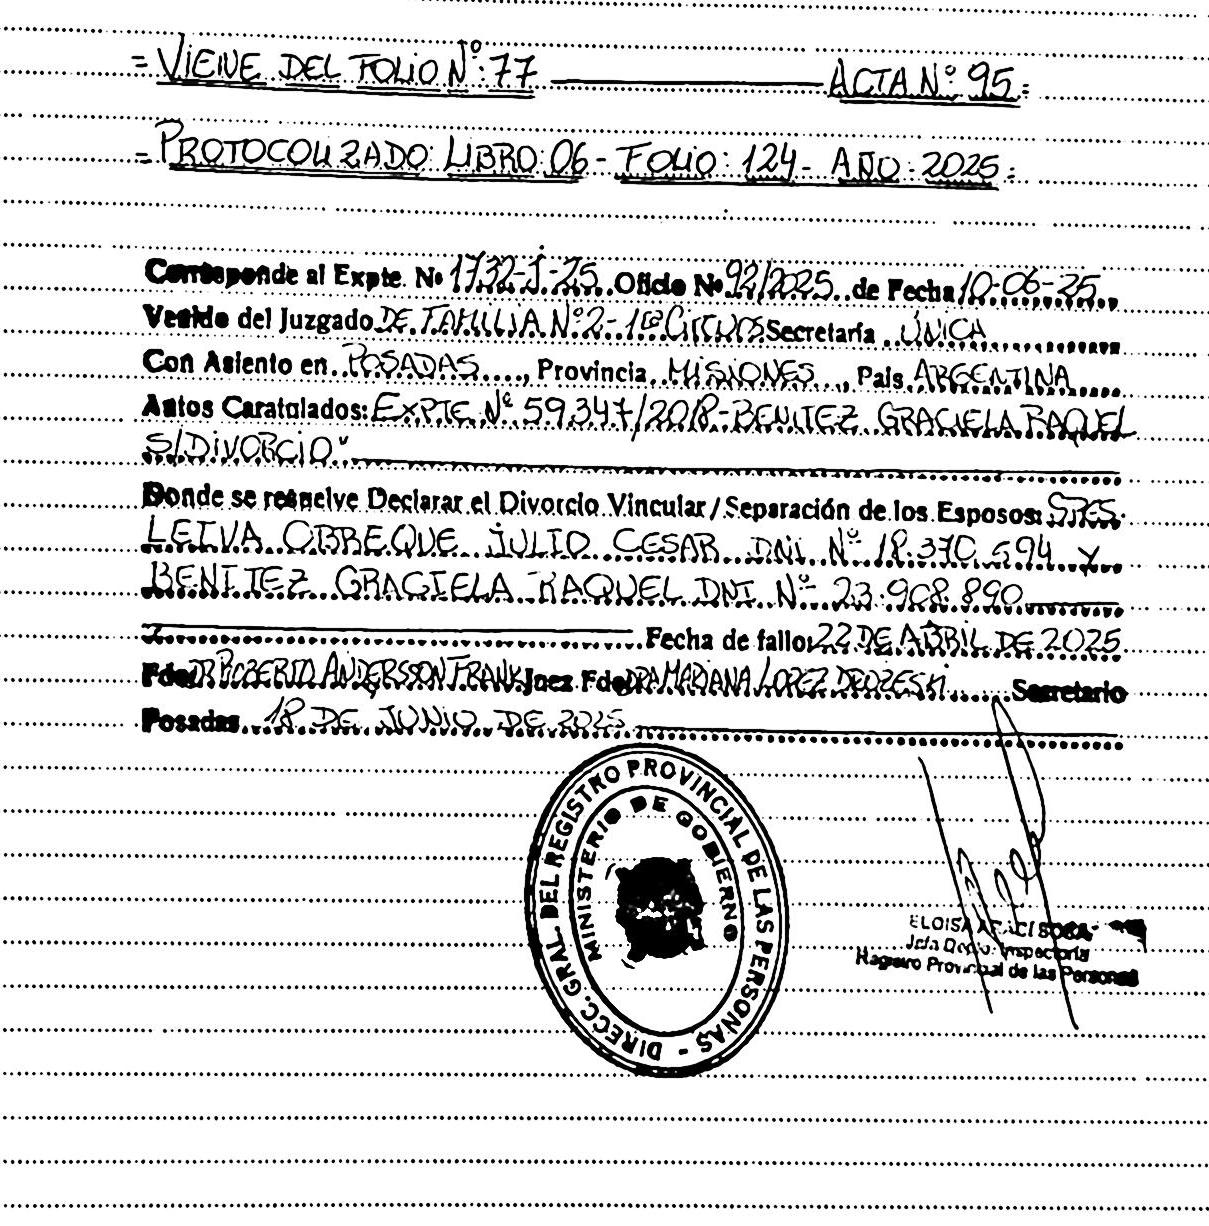 = VIENE DEL FOLIO Nº: 77 ———— ACTA Nº 95 =
= PROTOCOLIZADO: LIBRO: 06 - FOLIO: 124 - AÑO: 2025 =
Corresponde al Expte. Nº 1732-J-25. Oficio Nº 92/2025 de Fecha 10-06-25
Venido del Juzgado DE FAMILIA Nº 2 - 1ra Circuns Secretaría ÚNICA
Con Asiento en POSADAS, Provincia MISIONES, País ARGENTINA
Autos Caratulados: EXPTE Nº 59.347/2018 - BENITEZ GRACIELA RAQUEL
S/DIVORCIO"
Donde se resuelve Declarar el Divorcio Vincular / Separación de los Esposos: SRES.
LEIVA OBREQUE JULIO CESAR DNI Nº 18.370.594 Y
BENITEZ GRACIELA RAQUEL DNI Nº 23.908.890
Fecha de fallo: 22 DE ABRIL DE 2025
Fdo. DR ROBERTO ANDERSSON FRANK Juez Fdo. DRA MARIANA LOPEZ DROZESKI Secretario
Posadas, 18 DE JUNIO DE 2025
DIRECC. GRAL. DEL REGISTRO PROVINCIAL DE LAS PERSONAS -
MINISTERIO DE GOBIERNO
ELOISA SOSA
Jefa Inspectoria
Registro Provincial de las Personas